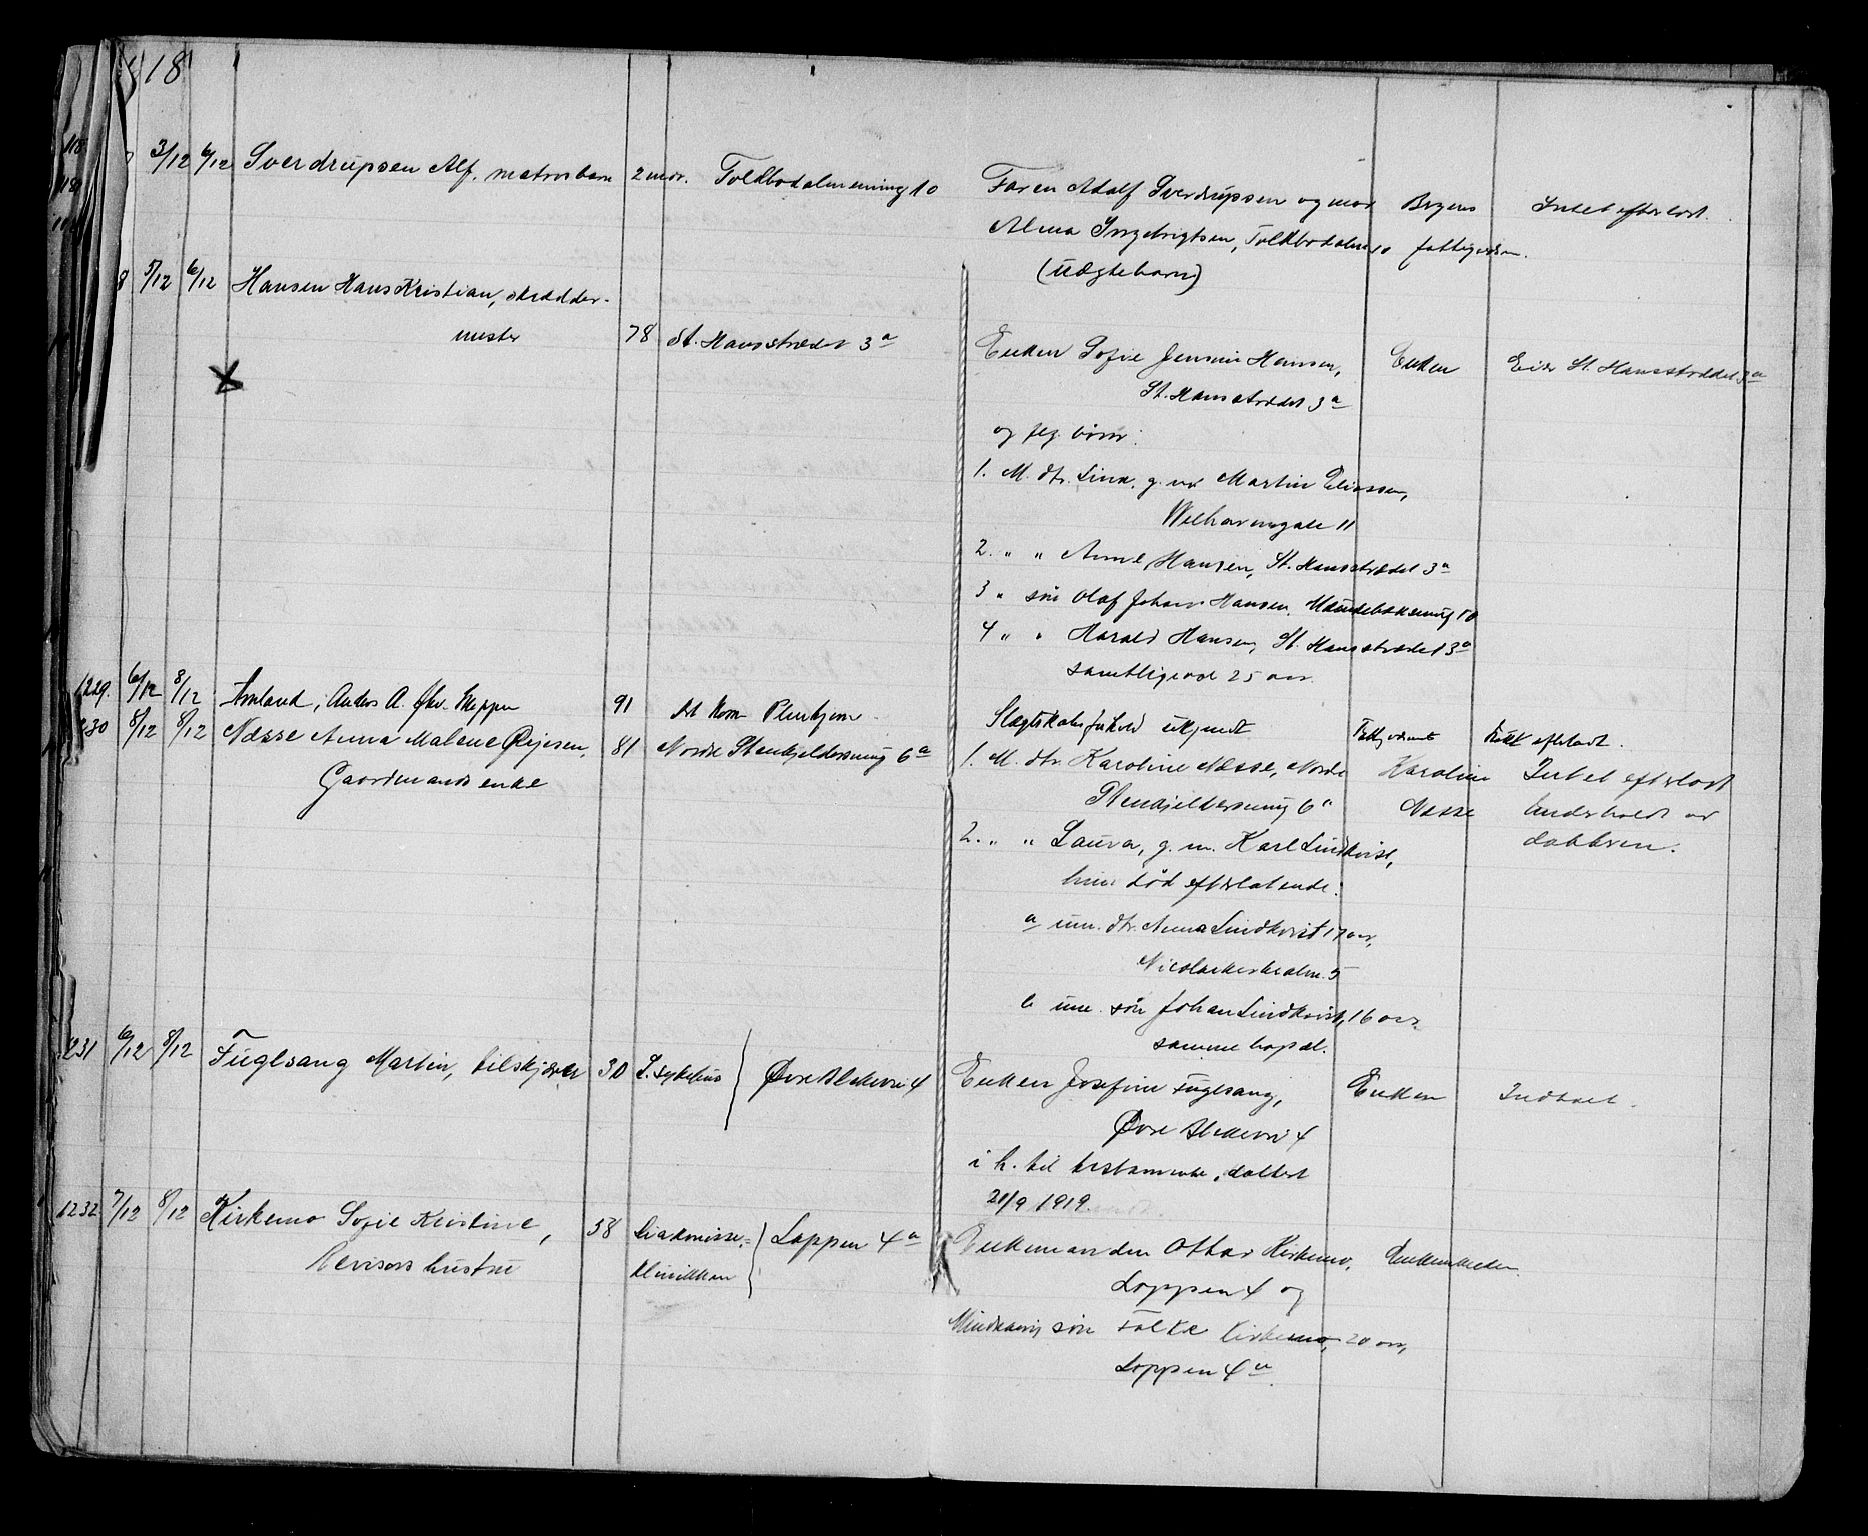 18
3/12 6/12 Sverdrupsen Alf, matrosbarn 2 mdr. Toldbodalmenning 10 Faren Adolf Sverdrupsen og mor Byens Intet efterlatt.
Alma Ingebrigtsen, Toldbodalm 10 fattigvæsen.
(uægte barn)
8 5/12 6/12 Hansen Hans Kristian, skrædder-
mester 78 St. Hansstrædet 3a Enken Sofie Jensine Hansen, Enken Eier St. Hansstrædet 3a
St. Hansstrædet 3a
og flg. børn:
1. M. dtr. Lina, g. m. Martin Eliassen,
Welhavensgate 11
2. " " Anne Hansen, St. Hansstrædet 3a
3 " søn Olaf Johan Hansen, 10
4 " " Harald Hansen, St. Hansstrædet 3a
samtlige over 25 aar.
1229. 6/12 8/12 Anders A. 91 Slegtskabsforhold ukjendt efterladt.
1230 8/12 8/12 Næsse Anna Malene 81 Nordre Stenkjeldersmug 6a 1. M. dtr. Karoline Næsse, Nordre Karoline Intet efterlatt
Gaardmands enke Stenkjeldersmug 6a Næsse Underholdt av
2. " " Laura, g. m. Karl Lindkvist, datteren.
hun død efterlatende:
a um. dtr. Anna Lindkvist 17 aar,
Nicolaikirkealm. 5
b um. søn Johan Lindkvist, 16 aar
samme bopæl.
1231 6/12 8/12 Fuglsang Martin, bilskjører 30 L. sykehus Øvre Blekevei 4 Enken Josefine Fuglsang, Enken Indboet.
Øvre Blekevei 4
i h. til testamente, dattert
21/9 1919.
1232 7/12 8/12 Kirkemo Sofie Kristine, 58 Diakonisse- Loppen 4a Enkemanden Ottar Kirkemo, Enkemanden.
Revisors hustru klinikken Loppen 4 og
Mindreaarig søn Folke Kirkemo, 20 aar,
Loppen 4a